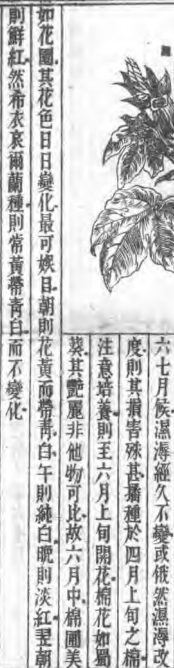 六七月候濕溽經久不變或俄然濕溽改
度則其損害殊甚播種於四月上旬之棉
注意培養則至六月上旬開花棉花如蜀
葵其艷麗非他物可比故六月中棉圃美
如花園其花色日日變化最可娛目朝則花黃而帶靑白午則純白晚則淡紅翌朝
則鮮紅然希衣哀爾蘭種則常黃帶靑白而不變化